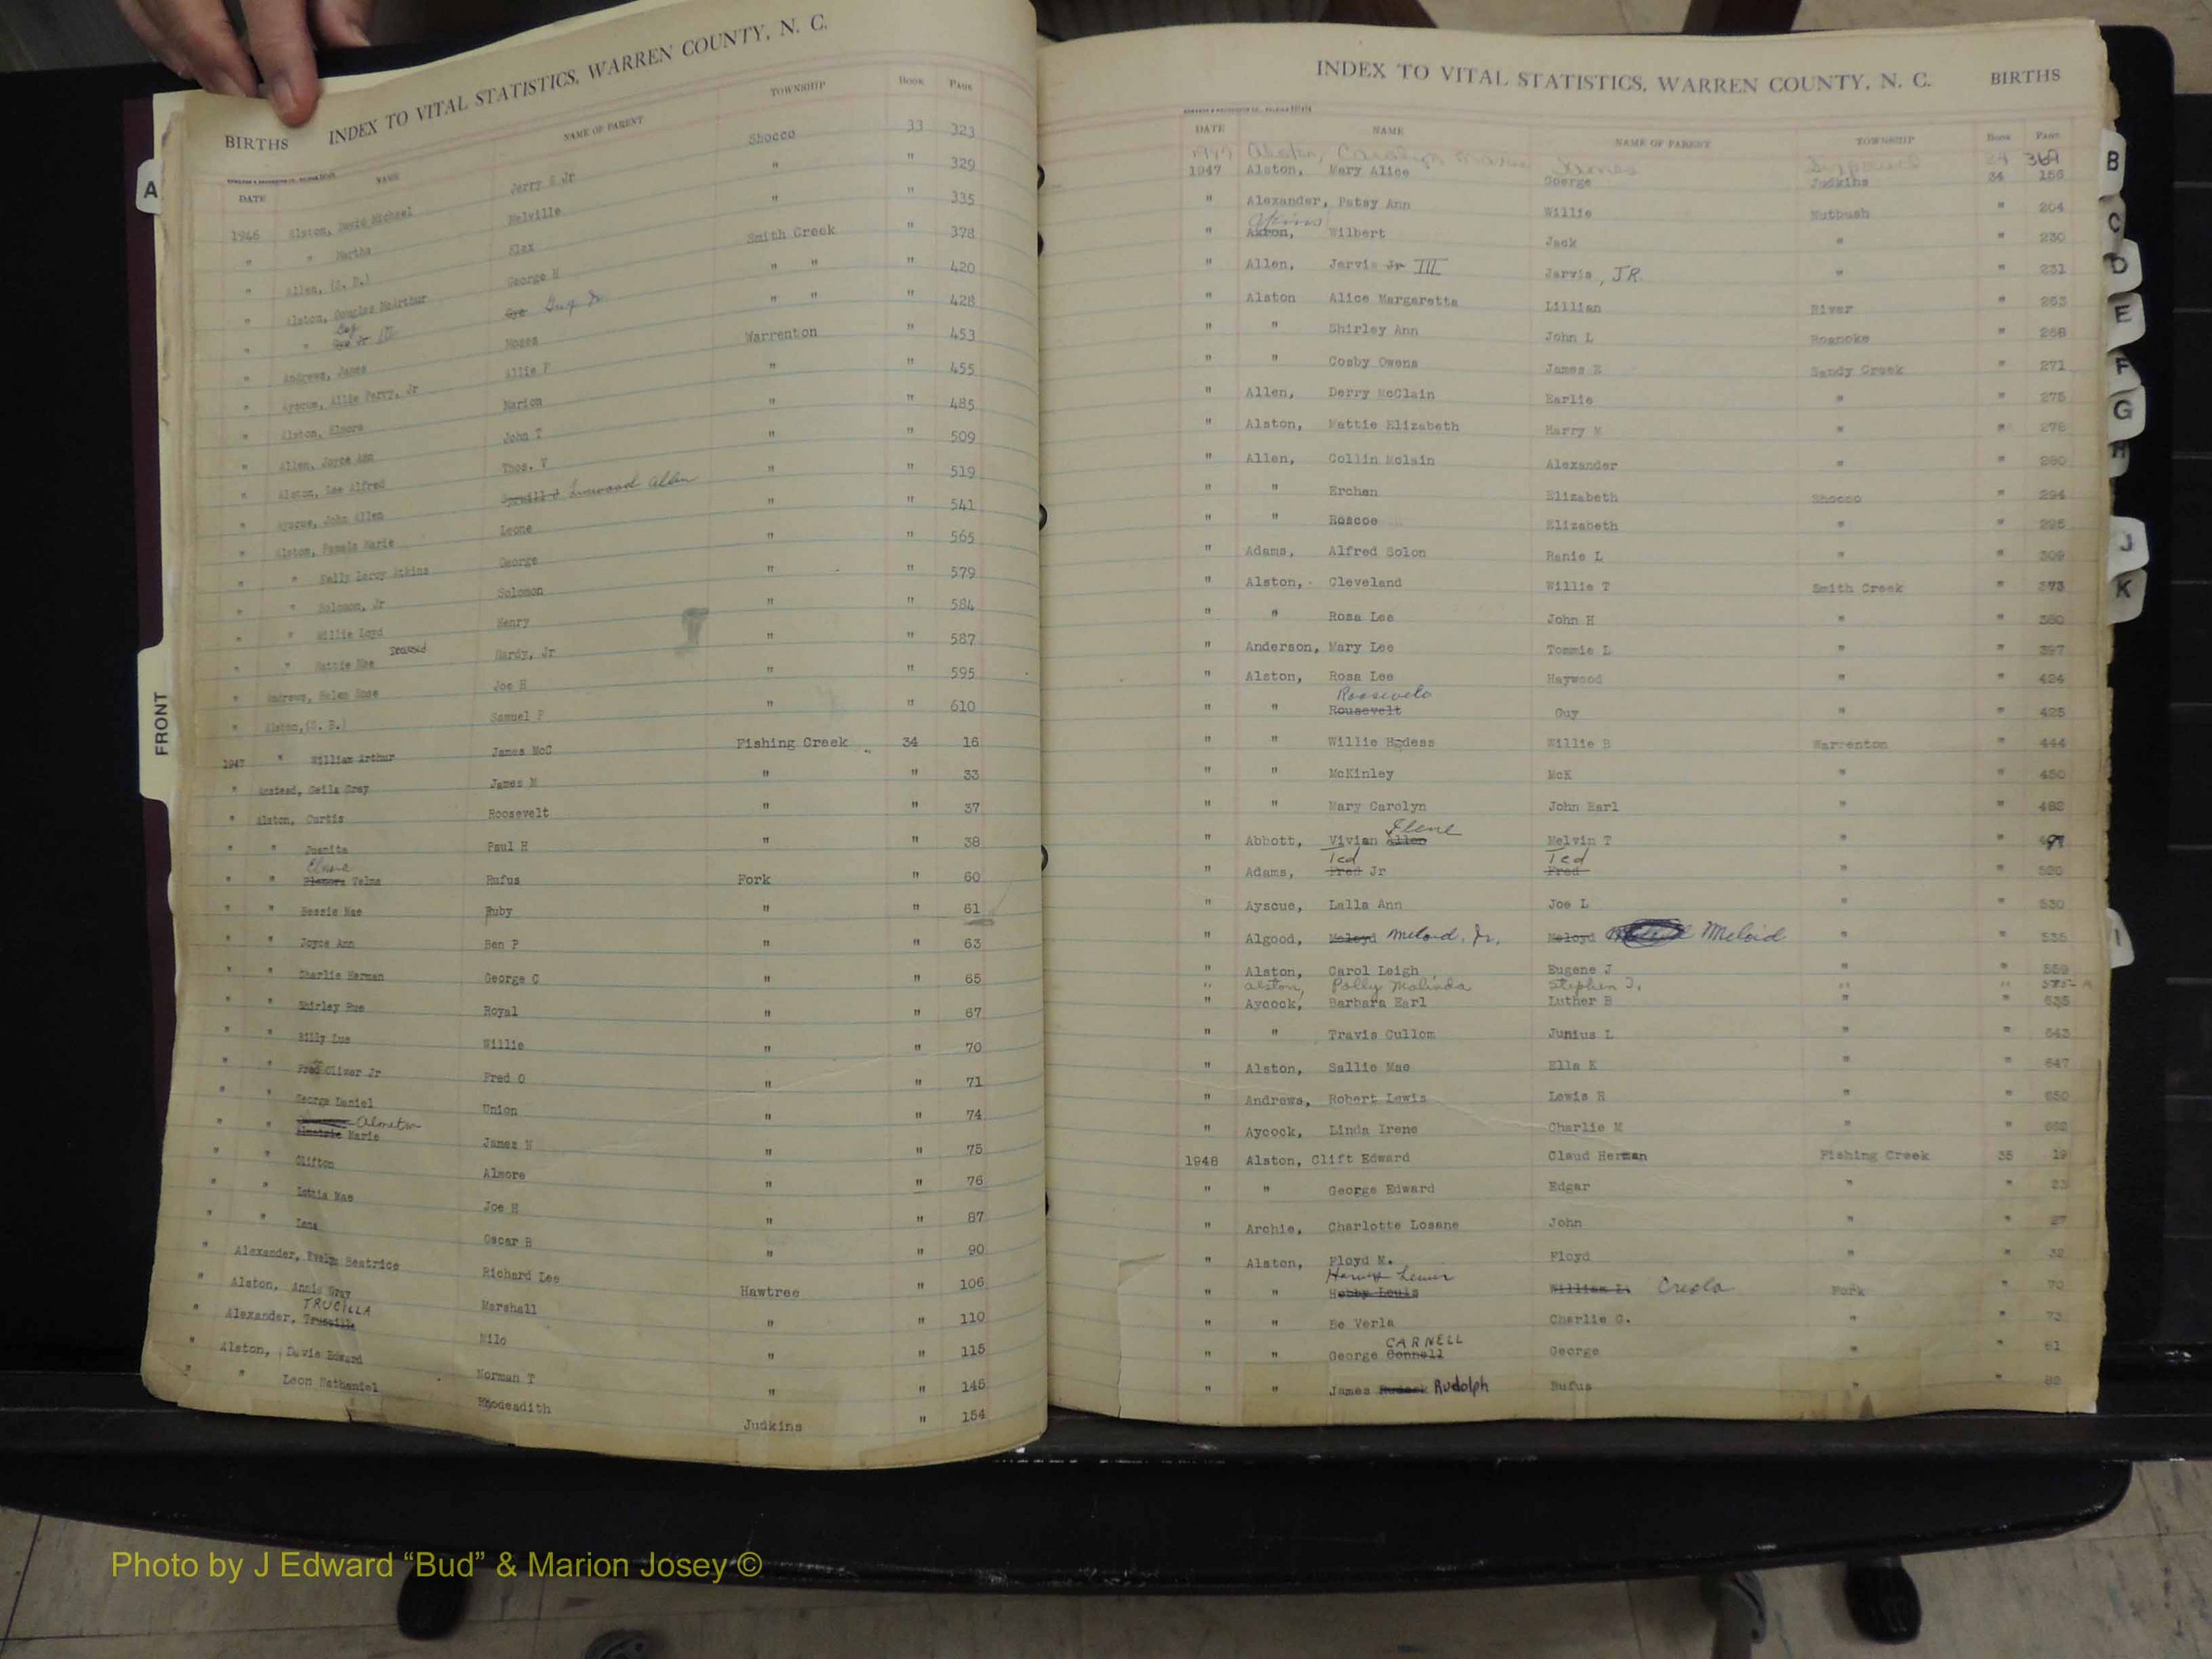 INDEX TO VITAL STATISTICS, WARREN COUNTY, N. C.
BIRTHS
DATE NAME NAME OF PARENT TOWNSHIP BOOK PAGE
1946 Alston, David Michael Jerry S Jr Shocco 33 323
" " Martha Melville " " 329
" Allen, (S. B.) Elex " " 335
" Alston, Douglas McArthur George H Smith Creek " 378
" " Guy Jr " " " 420
" Andrews, James Moses " " " 428
" Ayscue, Allie Perry, Jr Allie P Warrenton " 453
" Alston, Elnora Marion " " 455
" Allen, Joyce Ann John T " " 485
" Alston, Lee Alfred Thos. V " " 509
" Ayscue, John Allen Linwood Allen " " 519
" Alston, Pamela Marie Leone " " 541
" " Kelly Leroy Atkins George " " 565
" " Solomon, Jr Solomon " " 579
" " Willie Loyd Henry " " 584
" " Mattie Mae Deceased Hardy, Jr " " 587
" Andrews, Helen Rose Joe H " " 595
" Alston, (S. B.) Samuel P " " 610
1947 " William Arthur James McC Fishing Creek 34 16
" Anstead, Geila Gray James M " " 33
" Alston, Curtis Roosevelt " " 37
" " Juanita Paul H " " 38
" " Velma Rufus Fork " 60
" " Bessie Mae Ruby " " 61
" " Joyce Ann Ben P " " 63
" " Charlie Herman George C " " 65
" " Shirley Rue Royal " " 67
" " Billy Lue Willie " " 70
" " Fred Oliver Jr Fred O " " 71
" " George Daniel Union " " 74
" " Marie James N " " 75
" " Clifton Almore " " 76
" " Lettia Mae Joe H " " 87
" " Lena Oscar B " " 90
" Alexander, Evelyn Beatrice Richard Lee Hawtree " 106
" Alston, Annie Gray Marshall " " 110
TRUCILLA
" Alexander, Milo " " 115
" Alston, Davis Edward Norman T " " 145
" " Leon Nathaniel Rhodeadith Judkins " 154
INDEX TO VITAL STATISTICS, WARREN COUNTY, N. C. BIRTHS
DATE NAME NAME OF PARENT TOWNSHIP BOOK PAGE
1947 Alston, Carolyn James 34 369
1947 Alston, Mary Alice George Judkins 34 156
" Alexander, Patsy Ann Willie Nutbush " 204
Akins
" Akron, Wilbert Jack " " 230
" Allen, Jarvis Jr III Jarvis, JR. " " 231
" Alston Alice Margaretta Lillian River " 253
" " Shirley Ann John L Roanoke " 258
" " Cosby Owens James E Sandy Creek " 271
" Allen, Derry McClain Earlie " " 275
" Alston, Mattie Elizabeth Harry M " " 276
" Allen, Collin Mclain Alexander " " 280
" " Erchen Elizabeth Shocco " 294
" " Roscoe Elizabeth " " 295
" Adams, Alfred Solon Ranie L " " 309
" Alston, Cleveland Willie T Smith Creek " 373
" " Rosa Lee John H " " 380
" Anderson, Mary Lee Tommie L " " 397
" Alston, Rosa Lee Haywood " " 424
Roosevelt
" " Rousevelt Guy " " 425
" " Willie Hodess Willie B Warrenton " 444
" " McKinley McK " " 450
" " Mary Carolyn John Earl " " 488
Ilene
" Abbott, Vivian Allen Melvin T "
Ted Ted
" Adams, Fred Jr Fred " " 520
" Ayscue, Lalla Ann Joe L " " 530
" Algood, Meloyd Meloid, Jr. Meloyd Meloid " " 535
" Alston, Carol Leigh Eugene J " 559
" Alston, Polly Malinda Stephen J. " "
" Aycock, Barbara Earl Luther B " " 635
" " Travis Cullom Junius L " " 643
" Alston, Sallie Mae Ella K " " 647
" Andrews, Robert Lewis Lewis H " " 650
" Aycock, Linda Irene Charlie M " "
1948 Alston, Clift Edward Claud Herman Fishing Creek 35 19
" " George Edward Edgar " " 23
" Archie, Charlotte Losane John " " 27
" Alston, Floyd M. Floyd " " 32
" " Hobby Louis William L. Creola Fork " 70
" " Be Verla Charlie G. " " 73
CARNELL
" " George Connell George " " 81
" " James Rudolph Rufus " " 82
A
FRONT
B
C
D
E
F
G
H
J
K
I
Photo by J Edward “Bud” & Marion Josey ©